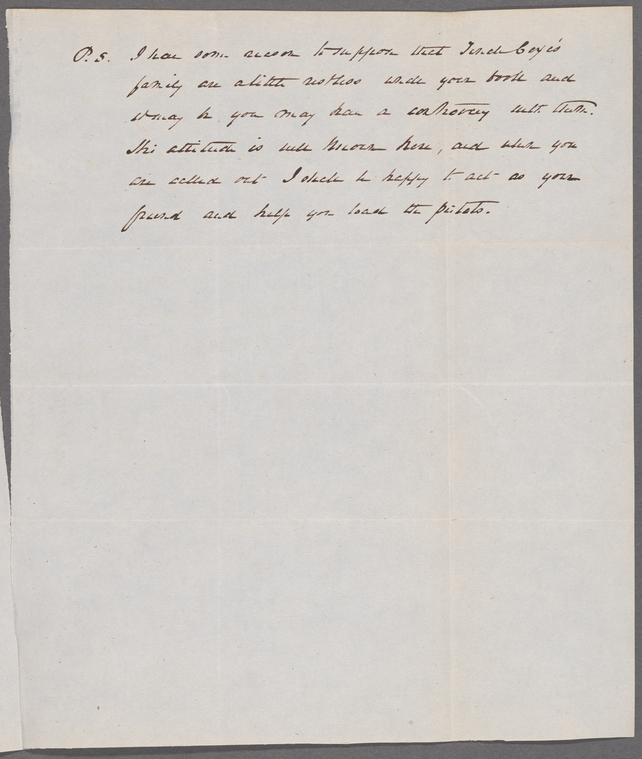 P.S. I have some reason to suppose that Tench Coxe's
family are a little restless under your book and
it may be you may have a controversy with them.
His attitude is well known here, and when you
are called out I shall be happy to act as your
friend and help you load the pistols.